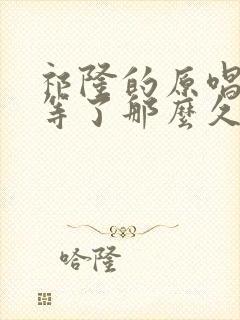 祁隆的原唱
等了那麼久
哈隆